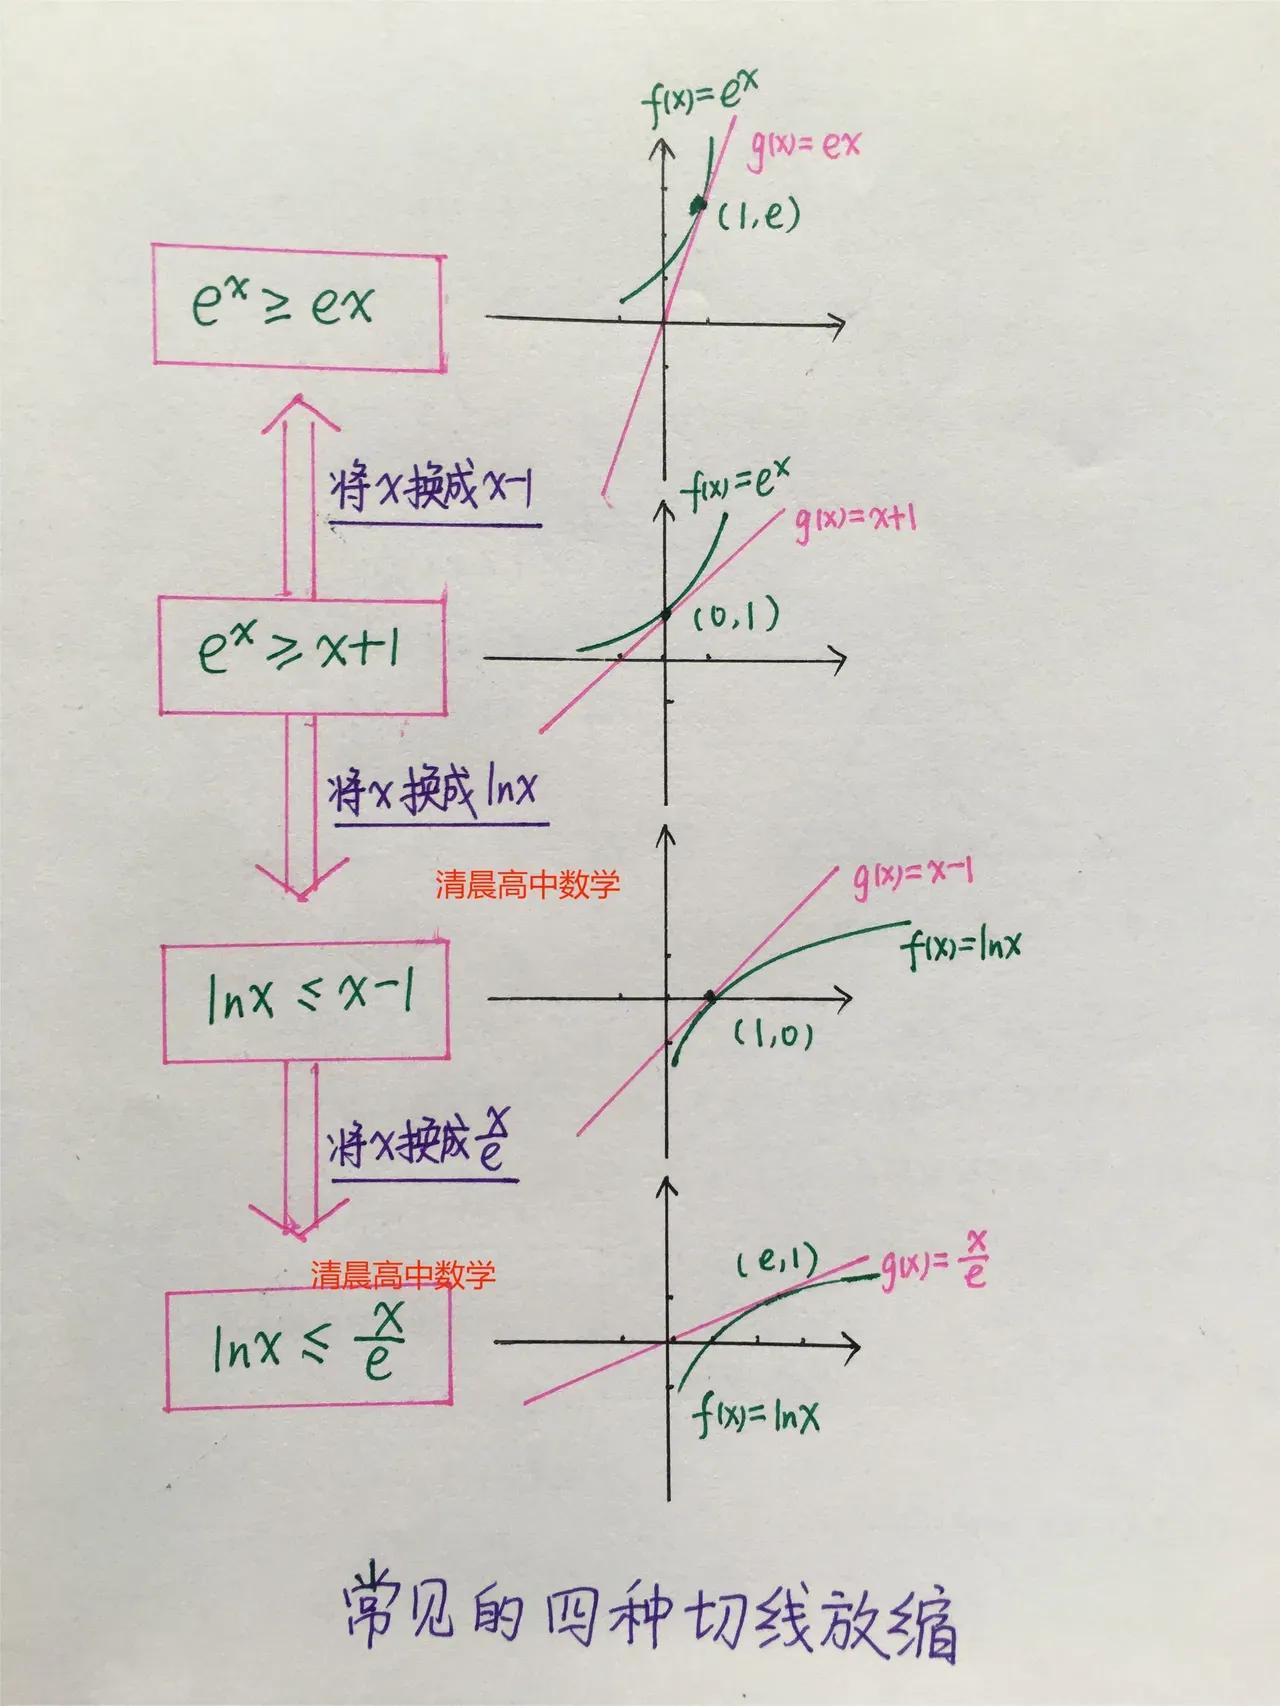 f(x)=eˣ
g(x)=ex
(1,e)
eˣ≥ex
将x换成x-1
f(x)=eˣ
g(x)=x+1
(0,1)
eˣ≥x+1
将x换成lnx
清晨高中数学
g(x)=x-1
f(x)=lnx
lnx≤x-1
(1,0)
将x换成x/e
清晨高中数学
(e,1)
g(x)=x/e
lnx≤x/e
f(x)=lnx
常见的四种切线放缩